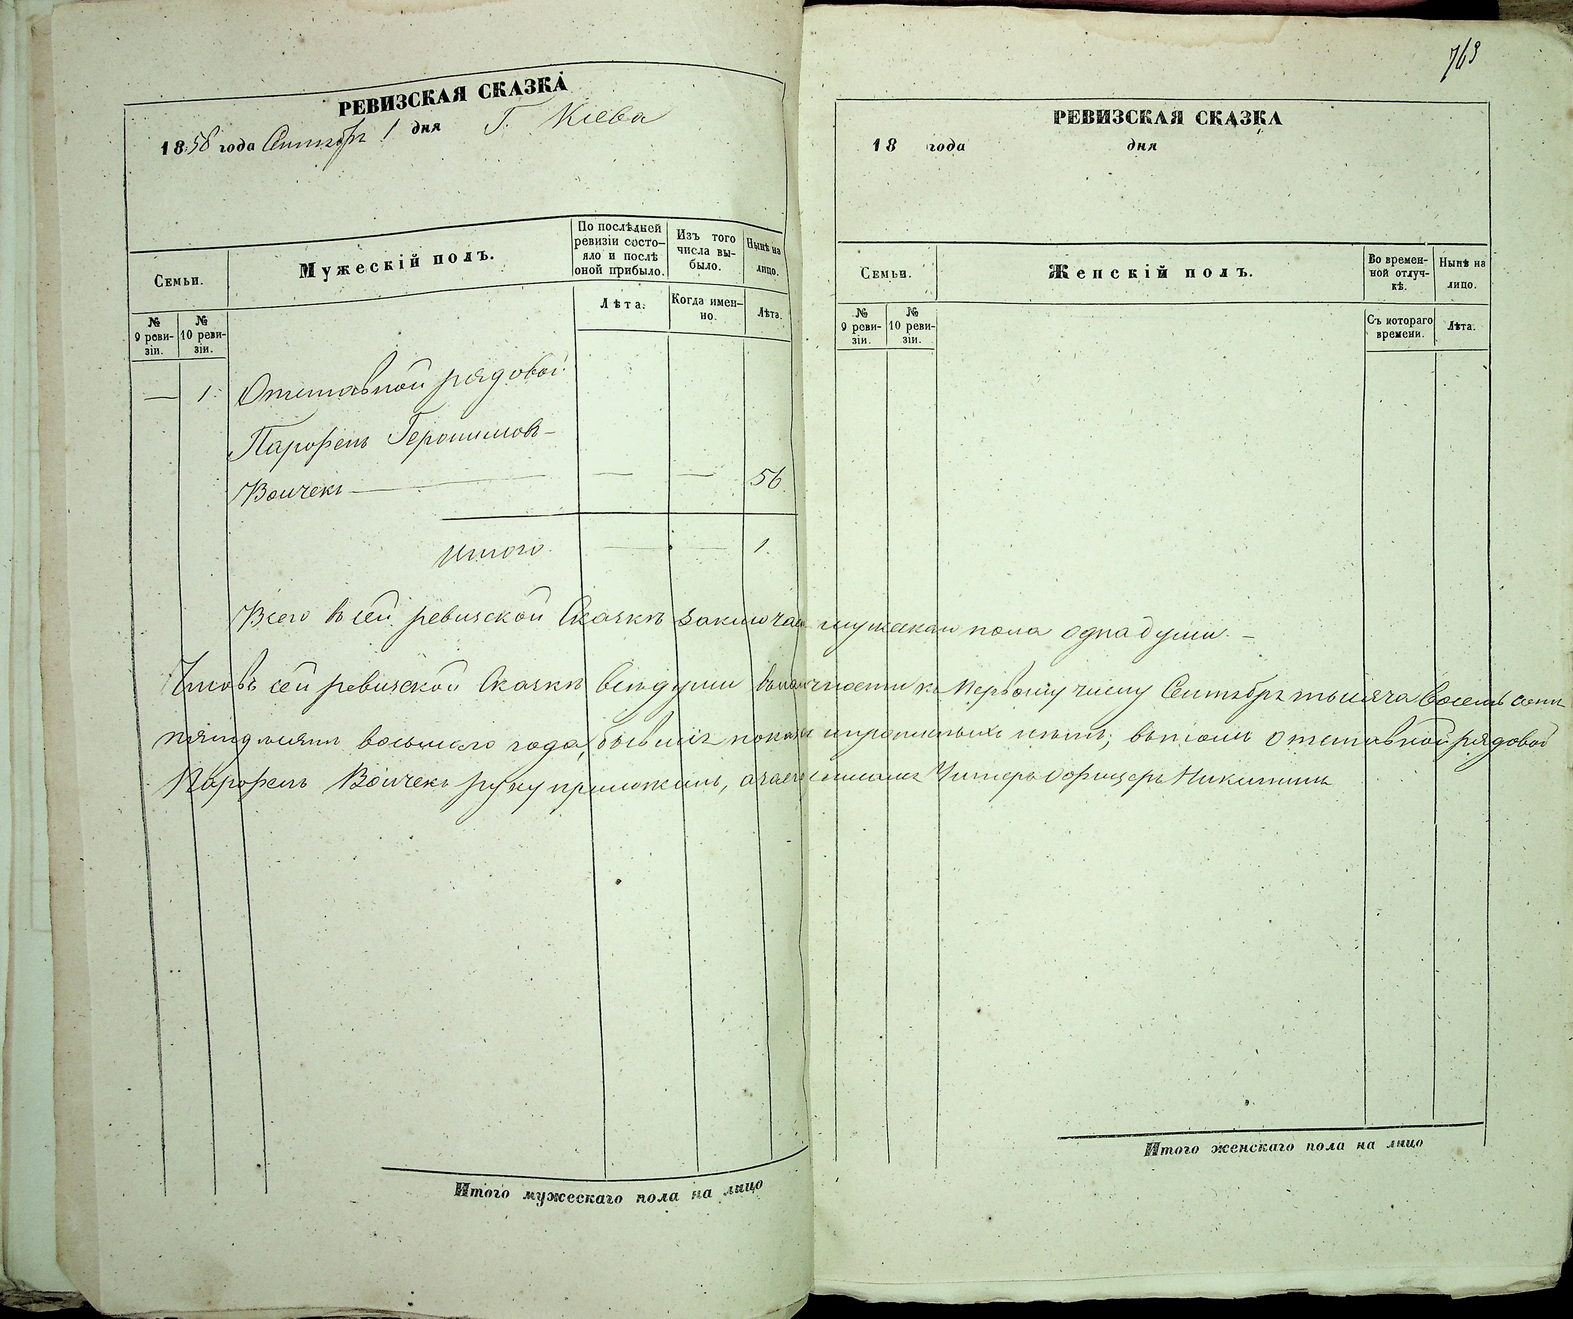 РЕВИЗСКАЯ СКАЗКА
1858 года Сентября 1 дня Г. Кіева
Семьи.
Мужескій полъ.
По послѣдней ревизіи состо-
яло и послѣ
оной прибыло.
Изъ того
числа вы-
было.
Нынѣ на
лицо.
№
9 реви-
зіи.
№
10 реви-
зіи.
Лѣта.
Когда имен-
но.
Лѣта.
— 1. Отставной рядовой
Парфенъ Геронимовъ —
Войчекъ — — — 56.
Итого. — — 1.
Всего в сей ревизской Сказкѣ заключает мужеска пола одна душа. —
Что въ сей ревизской Сказкѣ всѣ души в къ Первому числу Сентября тысяча восемь сотъ
пятдесятъ восьмого года, бывшія показаны и нѣтъ; въ томъ отставной рядовой
Парфенъ Войчекъ руку приложилъ, Унтеръ Офицеръ Никитинъ
Итого мужескаго пола на лицо
763
РЕВИЗСКАЯ СКАЗКА
18 года дня
Семьи.
Женскій полъ.
Во времен-
ной отлуч-
кѣ.
Нынѣ на
лицо.
№
9 реви-
зіи.
№
10 реви-
зіи.
Съ котораго
времени.
Лѣта.
Итого женскаго пола на лицо